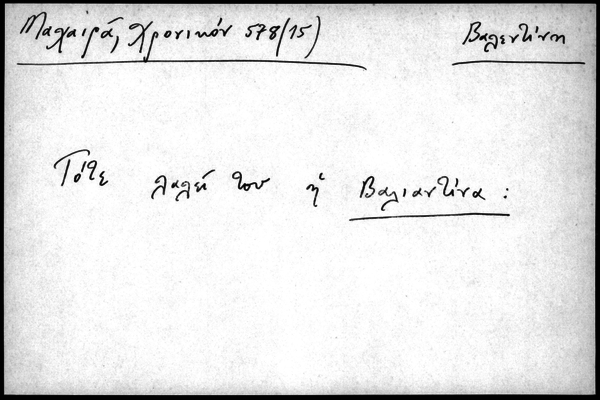 Μαχαιρά, Χρονικόν 578(15)
Βαλεντίνη
Τότε λαλεί του η Βαλιαντίνα :